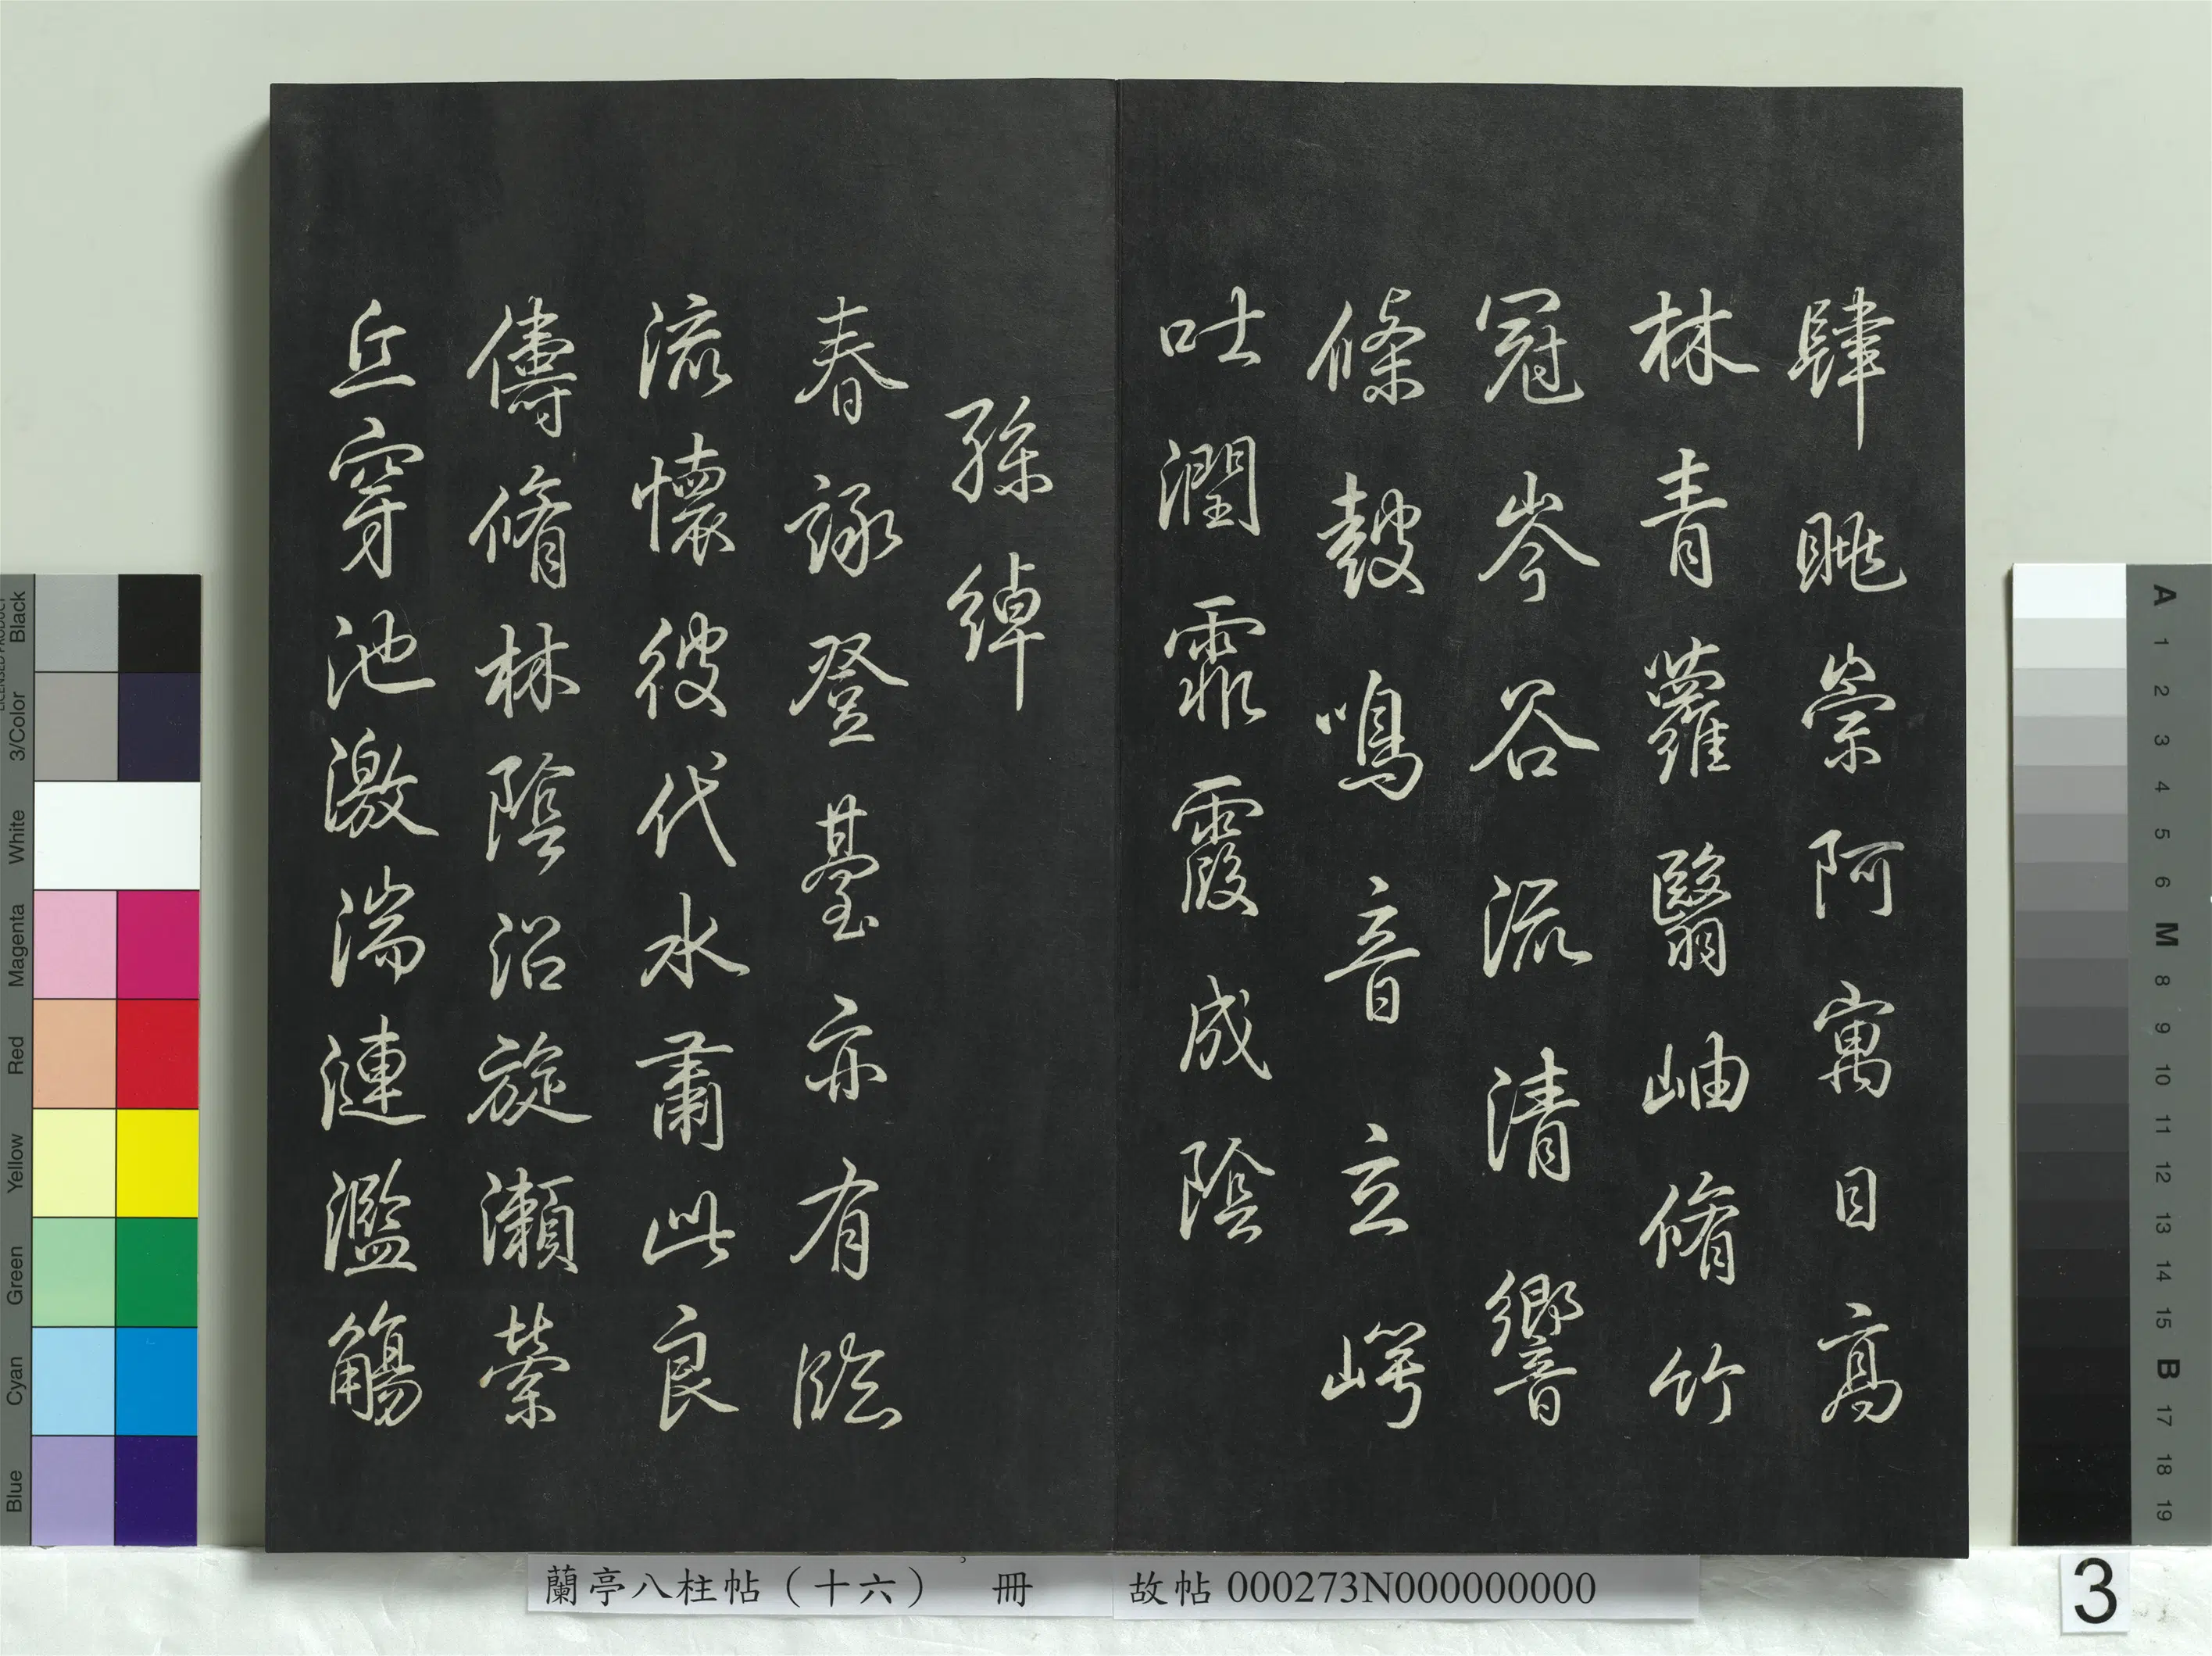 肆眺崇阿寓目高
林青蘿翳岫脩竹
冠岑谷流清響
條鼓鳴音立崿
吐潤霏霧成陰
孫綽
春詠登臺亦有臨
流懷彼伐木肅此良
儔脩林陰沼旋瀨縈
丘穿池激湍連濫觴
蘭亭八柱帖（十六） 冊
故帖000273N000000000
3
Black
3/Color
White
Magenta
Red
Yellow
Green
Cyan
Blue
A
1
2
3
4
5
6
M
8
9
10
11
12
13
14
15
B
17
18
19